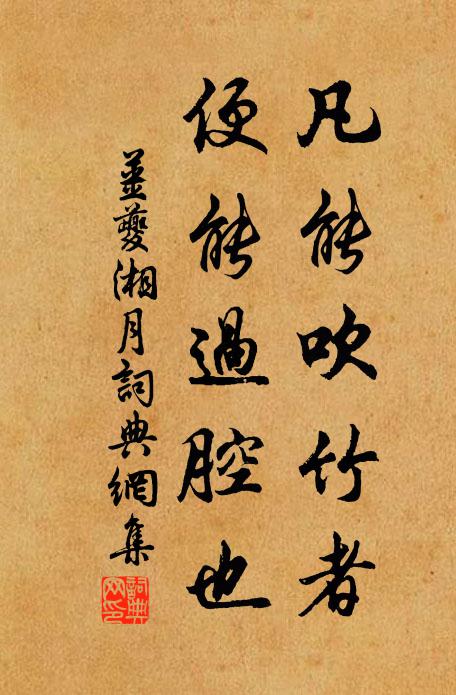 凡能吹竹者
便能過腔也
姜夔湘月詞典網集
詞典網印